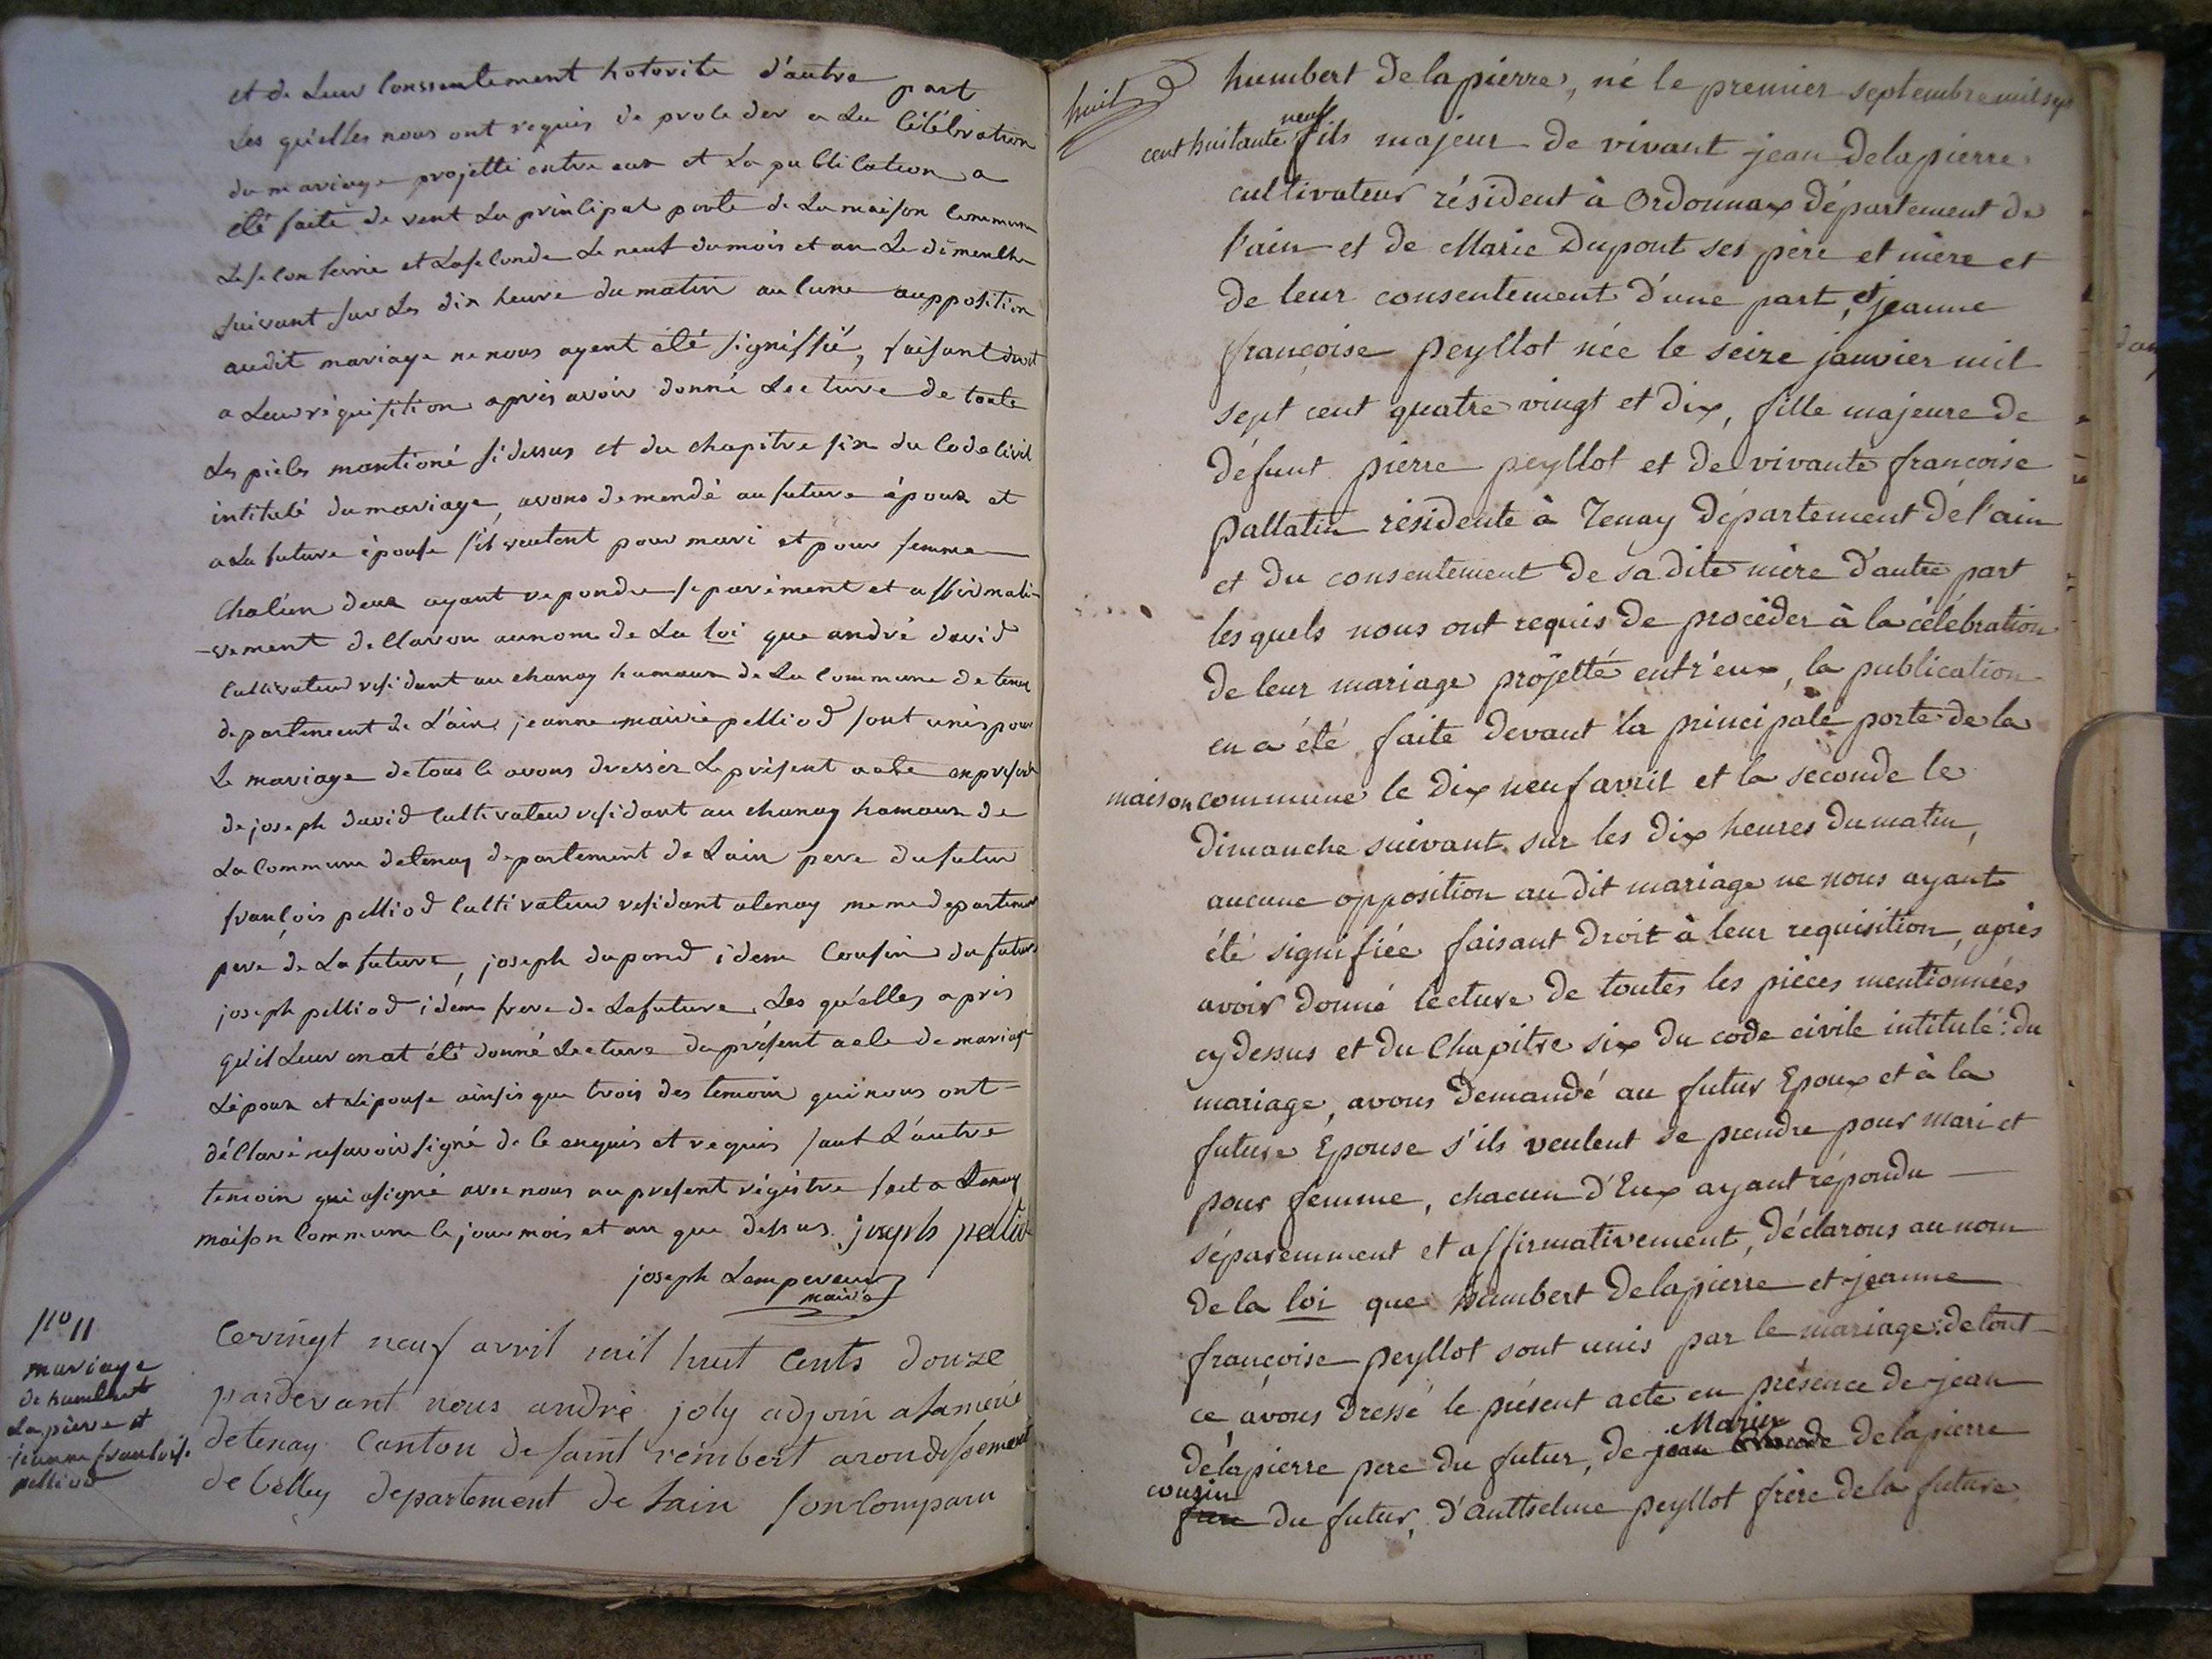 et de Leur Conssentement hotorite d'autre part
Les qu'elles nous ont requis de proleder a La Célébration
du mariage projetté entre eux et La publication a
été faite de vent La prinlipal porte de La maison Commune
suivant sur Les dix heure du matin au lune aupposition
audit mariage ne nous ayent été signiffié, faisant droit
a Leur réquisition apris avoir donné Lecture de toute
Les pieles mantioné sidessus et du chapitre six du Code livil
intitulé du mariage, avons demendé au future époux et
a La future épouse s'il veulent pour mari et pour femme
Chalun deux ayant repondu séparément et affirmati-
-vement dellaron aunom de La loi que andré david
Cultivateur residant au chanay hamaux de La Commune de tenay
departement de L'ain jeanne mairie pelliod sont unis pour
Le mariage de tous le avons dresser Le présent acte enpresence
de joseph david Cultivateur residant au chanay hamaux de
La Commune detenay departement de Lain pere dufutur
françois pelliod Cultivateur residant atenay meme departement
pere de La future, joseph dupond idem Cousin du futur
joseph pelliod idem frere de Lafuture, Les qu'elles apris
qu'il Leur enat été donné Lecture du présent acte de mariage
L'époux et L'épouse ainsis que trois des temoin qui nous ont
déllaré nesavoir signé de le enquis et requis sauf L'autre
temoin qui asigné avec nous au present régistre fait a Tenay
maison Commune le jour mois et an que dessus. joseph pelliod
joseph Lempereur
maire
nº 11
mariage
de humbert
Lapierre et
jeanne françoise
pelliod
Ce vingt neuf avril mil huit Cents douze
pardevant nous andré joly adjoin alamerie
detenay Canton de saint rembert arondissement
de belley departement de Lain son Comparu
huit
humbert Delapierre, né le premier septembre mil sept
cent huitante neuf fils majeur de vivant jean Delapierre
cultivateur résident à Ordonnax département de
l'ain et de Marie Dupont ses père et mère et
de leur consentement d'une part, et jeanne
françoise peyllot née le seize janvier mil
sept cent quatre vingt et dix, fille majeure de
défunt pierre peyllot et de vivante françoise
pallatin résidente à Tenay Département de l'ain
et du consentement de sa dite mère d'autre part
les quels nous ont requis de procéder à la célébration
de leur mariage projetté entr'eux, la publication
en a été faite devant la principale porte de la
maison commune le dix neuf avril et la seconde le
dimanche suivant sur les dix heures du matin,
aucune opposition au dit mariage ne nous ayant
été signifiée faisant droit à leur requisition, après
avoir donné lecture de toutes les pièces mentionnées
cy dessus et du Chapitre six du code civile intitulé: du
mariage, avons demandé au futur Epoux et à la
future Epouse s'ils veulent se prendre pour mari et
pour femme, chacun d'Eux ayant répondu
séparemment et affirmativement, déclarons au nom
de la loi que humbert Delapierre et jeanne
françoise peyllot sont unis par le mariage: de tout
ce, avons dressé le présent acte en présence de jean
delapierre pere du futur, de jean Marie delapierre
cousin frere du futur, d'anttselme peyllot frère de la future